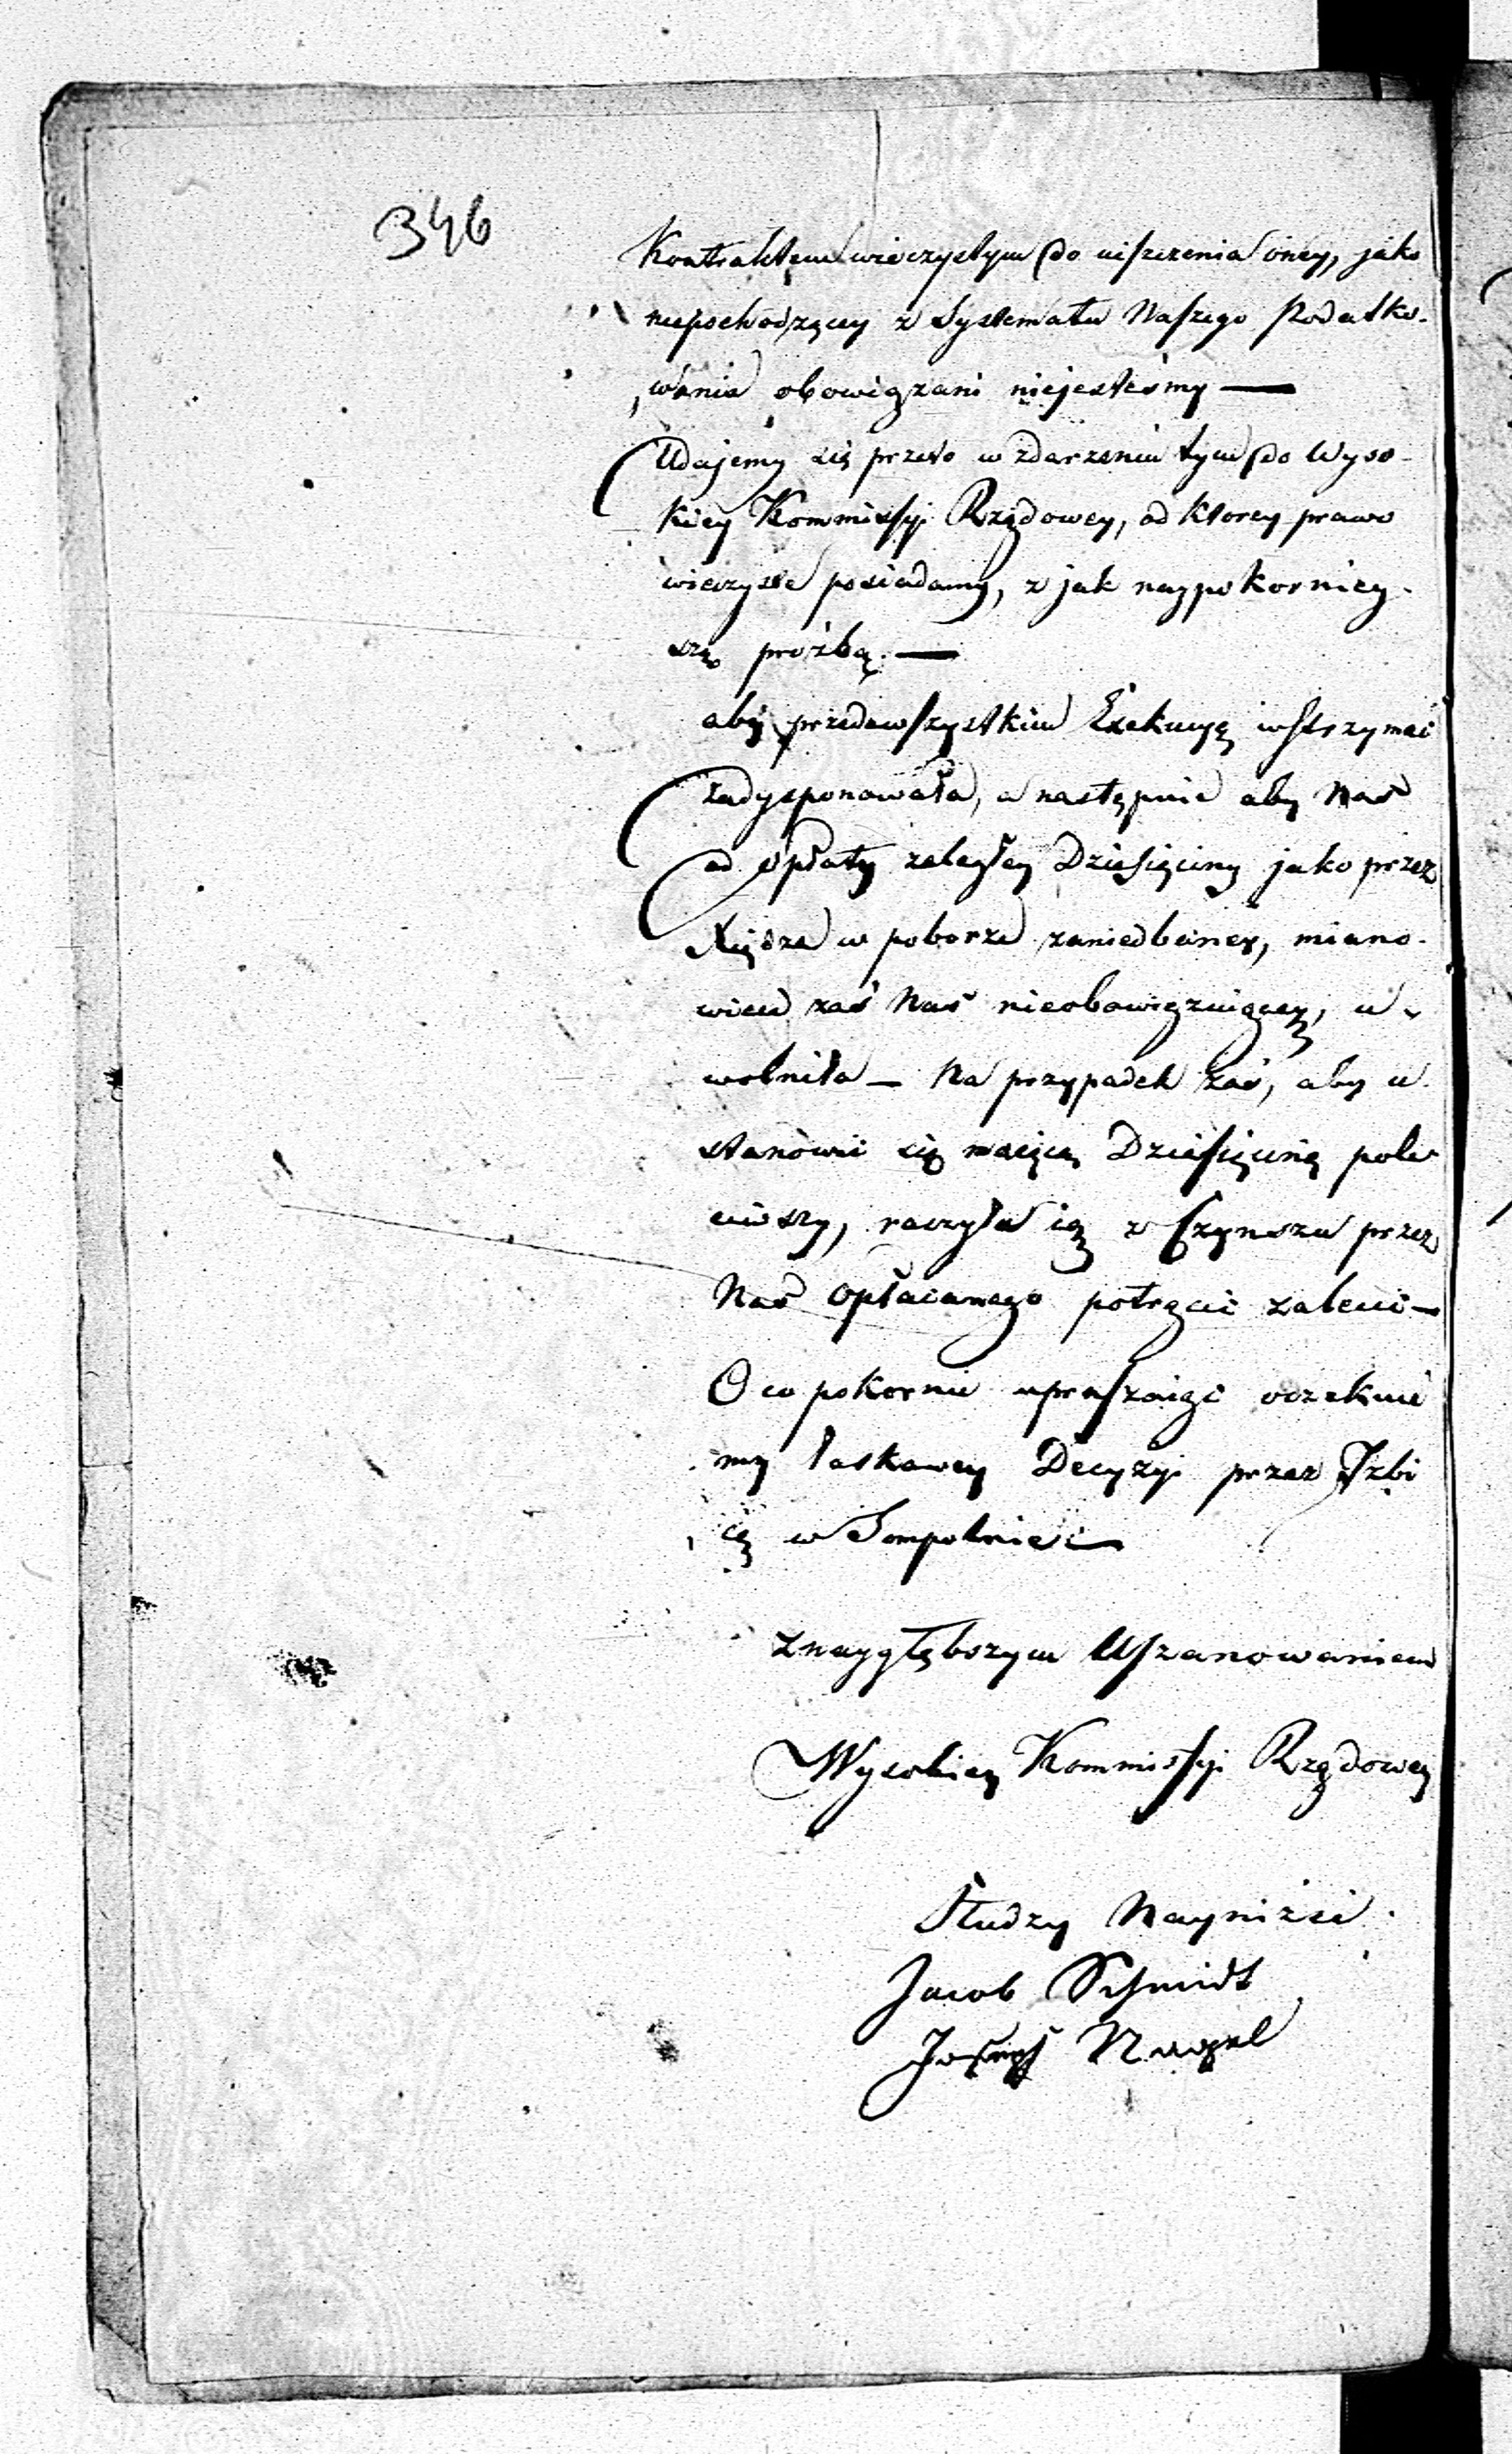 346
Kontraktem wieczystym do uiszczenia oney, jako
niepochodzącey z Systematu Naszego Podatko-
wania obowiązani niejesteśmy —
Udajemy się przeto w zdarzeniu tym do Wyso-
kiey Kommissyi Rządowey, od ktorey prawo
wieczyste posiadamy, z jak naypokorniey-
szą proźbą. —
aby przedewszystkim Exekucyę wstrzymać
zadysponowała, a następnie aby Nas
od opłaty zaległey Dziesięciny jako przez
Xiędza w poborze zaniedbaney, miano-
wicie zaś Nas nieobowięzuiącey, u-
wolniła — Na przypadek zaś, aby u-
stanowić się maiącą Dziesięcinę pole-
ciwszy, raczyła ią z Czynszu przez
Nas opłacanego potrącić zalecić —
O co pokornie upraszaiąc oczekuie
my łaskawey Decyzyi przez Izbi
cę w Sompolnie —
z naygłębszym Uszanowaniem
Wysokiey Kommissyi Rządowey
Słudzy Nayniżsi.
Jacob Schmidt
Joseph Nagel